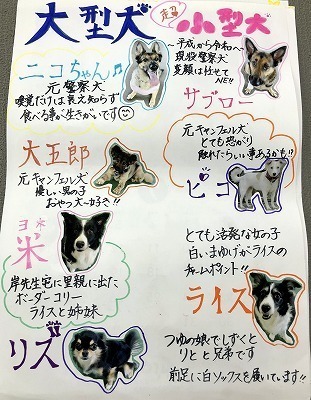 大型犬
超
小型犬
ニコちゃん♪
元警察犬
嗅覚だけは衰え知らず
食べる事が生きがいです
〜平成から令和へ〜
現役警察犬
変顔は任せてNE!!
サブロー
大五郎
元キャンフェル犬
優しい男の子
おやつ大好き!!
元キャンフェル犬
とても恐がり
触れたらいい事あるかも!!
ピコ
ヨネ
米
岸先生宅に里親に出た
ボーダーコリー
ライスと姉妹
とても活発な女の子
白いまゆげがライスの
チャームポイント!!
ライス
リズ
つゆの娘でしずくと
りとと兄弟です
前足に白ソックスを履いています!!